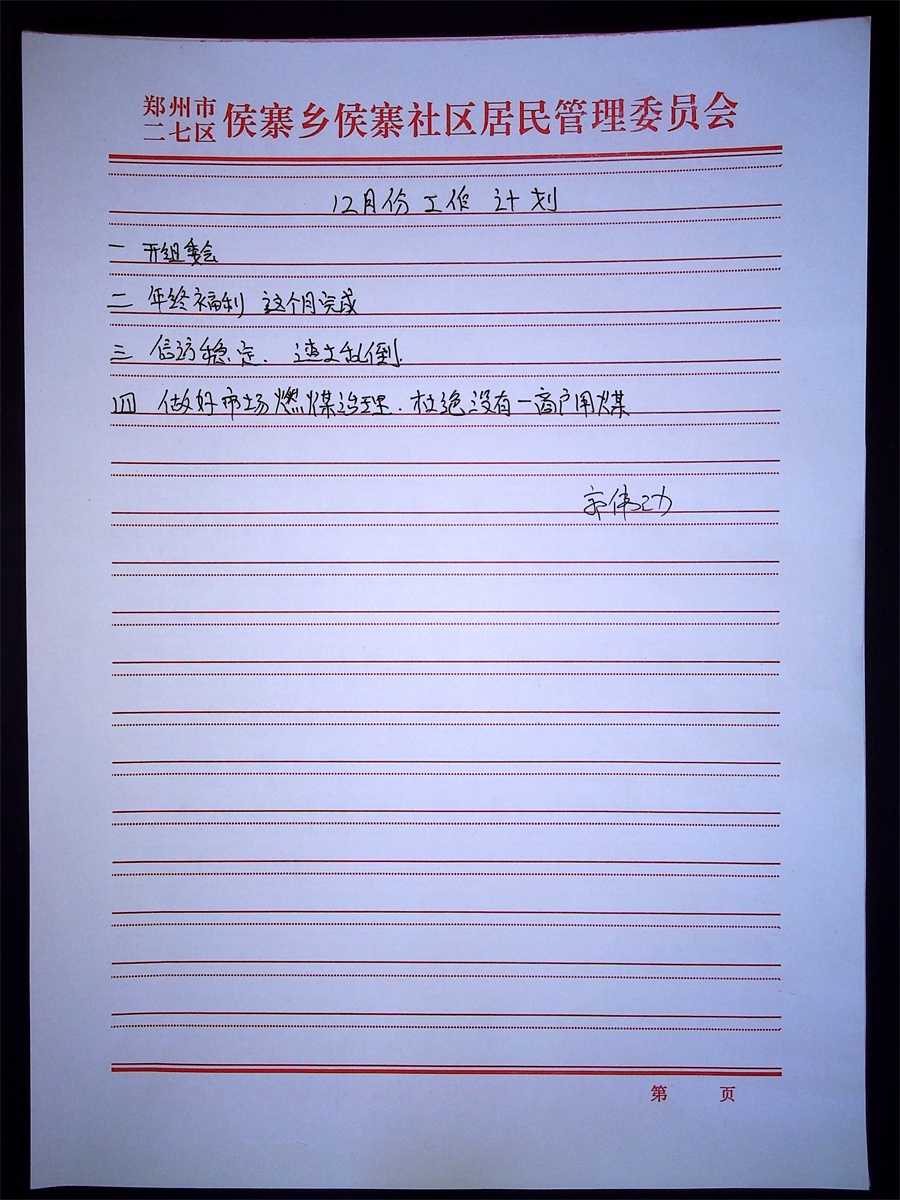 郑州市
二七区 侯寨乡侯寨社区居民管理委员会
12月份工作计划
一 开组委会
二 年终福利 这个月完成
三 信访稳定. 违文乱倒.
四 做好市场燃煤治理.杜绝没有一商户用煤
郭伟功
第 页